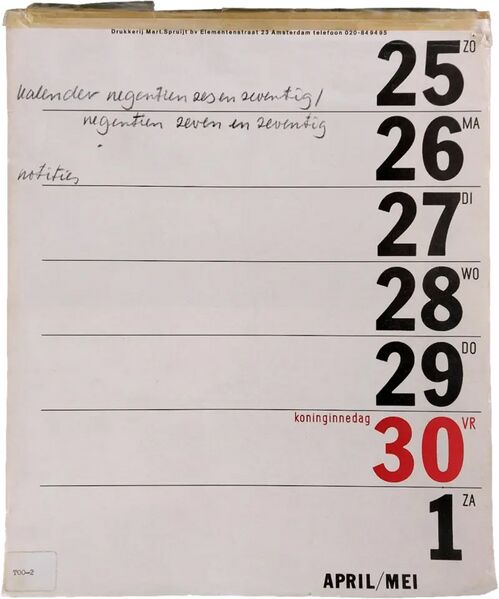 Drukkerij Mart.Spruijt bv Elementenstraat 23 Amsterdam telefoon 020-849495
25 ZO
kalender negentien zes en zeventig/
negentien zeven en zeventig
26 MA
notities
27 DI
28 WO
29 DO
koninginnedag 30 VR
1 ZA
APRIL/MEI
TOO-2